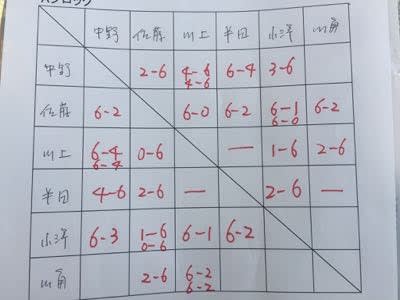 ブロック
中野 佐藤 川上 半田 小澤 山角
中野 2-6 4-6 6-4 3-6
4-6
佐藤 6-2 6-0 6-2 6-1 6-2
6-0
川上 6-4 0-6 — 1-6 2-6
6-4
半田 4-6 2-6 — 2-6 —
小澤 6-3 1-6 6-1 6-2
0-6
山角 2-6 6-2
6-2